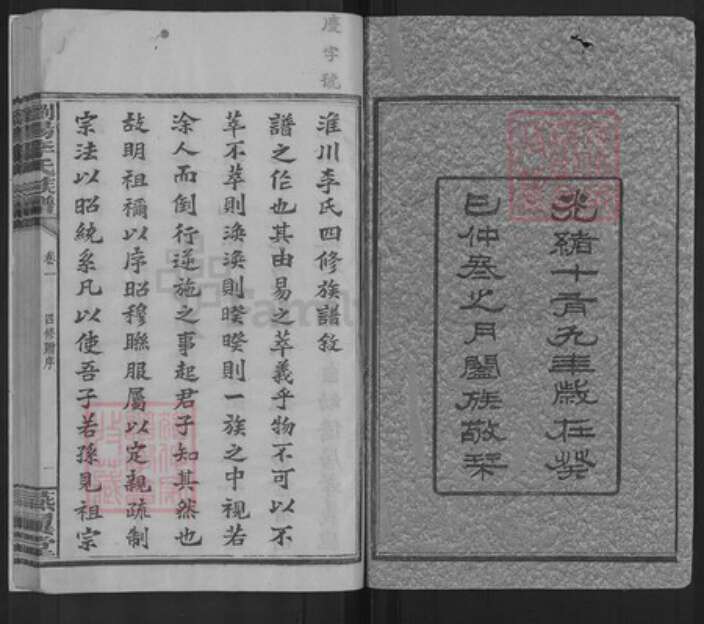 光緒十有九年歲在癸
巳仲叄之月闔族敬栞
慶字號
淮川李氏四修族譜敘
譜之作也其由易之萃義乎物不可以不
萃不萃則渙渙則暌暌則一族之中視若
涂人而倒行逆施之事起君子知其然也
故明祖禰以序昭穆聯服屬以定親疏制
宗法以昭統系凡以使吾子若孫見祖宗
瀏陽李氏族譜
卷一
四修譜序
一